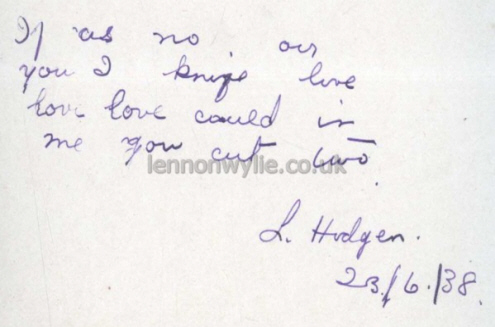 If as no our
you I knife love
love love could in
me you cut two
lennonwylie.co.uk
L. Hodgen.
23/6/38.